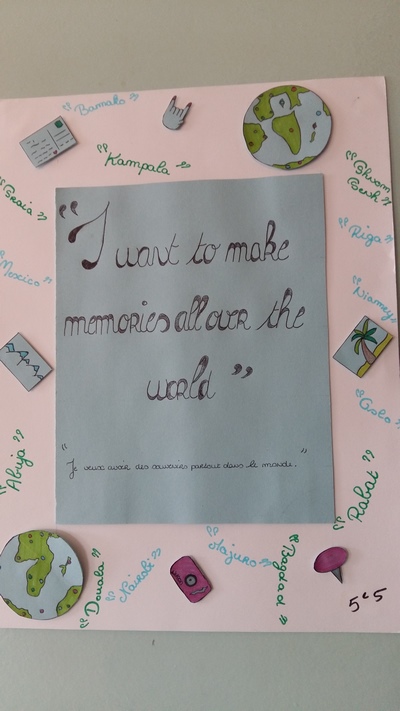 "Bamako"
"Kampala"
"Phnom
Penh"
"Praia"
"Riga"
"Mexico"
"Niamey"
"I want to make
memories all over the
world"
"Oslo"
"Je veux avoir des souvenirs partout dans le monde."
"Abuja"
"Rabat"
"Majuro"
"Bagdad"
"Nairobi"
"Douala"
5e5